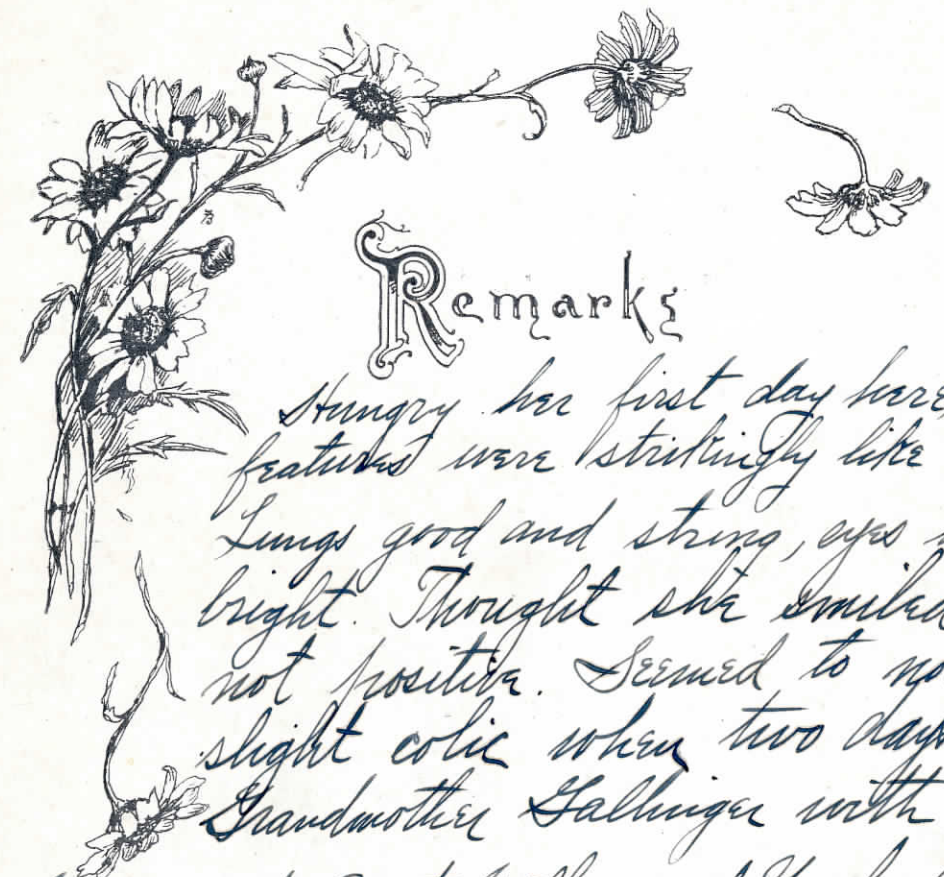 Remarks
Hungry her first day here,
features were strikingly like
Lungs good and strong, eyes
bright. Thought she smiled
not positive. Seemed to no
slight colic when two days
Grandmother Gallinger with